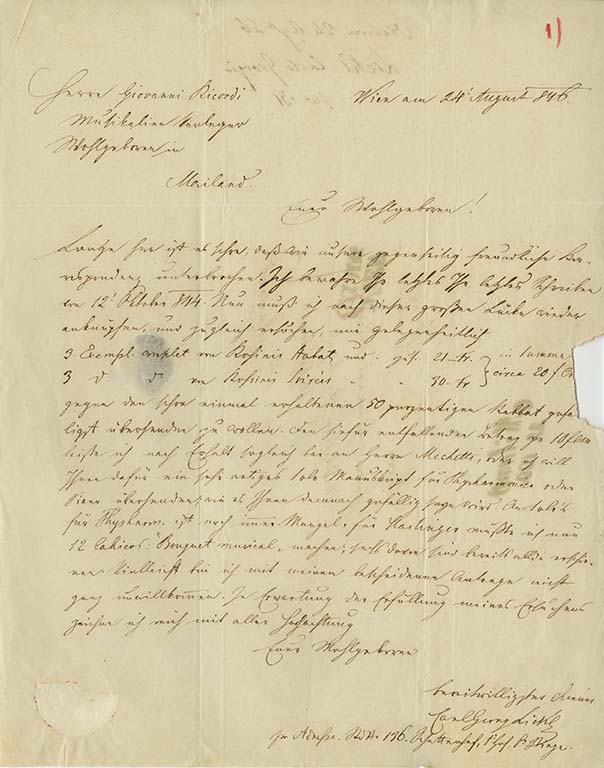 1)
Herrn Giovanni Ricordi
Wien am 24t August 846.
Musikalien Verleger
Wohlgeboren in
Mailand.
Euer Wohlgeboren!
Lange her ist es schon, daß wir unsere gegenseitig freundliche Cor-
respondenz unterbrochen. Ich bewahre Ihr letztes Ihr letztes Schreiben
von 12t Oktober 844. Nun muß ich nach dieser großen Lücke wieder
anknüpfen, und zugleich ersuchen, mir gelegenheitlich
3 Exempl. complet von Rossinis Stabat, und 21 fr.
3 d. d. von Rossinis Soirées " " 30 fr. } in Summe circa 20 f
gegen den schon einmal erhaltenen 50 perzentigen Rabbat gefäl-
ligst übersenden zu wollen. Den hiefür entfallenden Betrag pr 10 f
leiste ich nach Erhalt sogleich bei an Herrn Mechetti, oder ich will
Ihnen dafür ein sehr artiges Solo Manuskript für Physharmonica oder
Piano übersenden; wie es Ihnen demnach gefällig seyn wird. An Solo's
für Physharm. ist noch immer Mangel. Für Haslinger mußte ich nun
12 Cahiers: "Bouquet musical" machen; sechs davon sind bereits allda erschie-
nen. Vielleicht bin ich mit meinem bescheidenen Antrage nicht
ganz unwillkommen. In Erwartung der Erfüllung meines Ersuchens
zeichne ich mich mit aller Hochachtung
Euer Wohlgeboren
bereitwilligster Diener
Carl Georg Lickl
Adresse. Stdt. 136. Schottenhof,